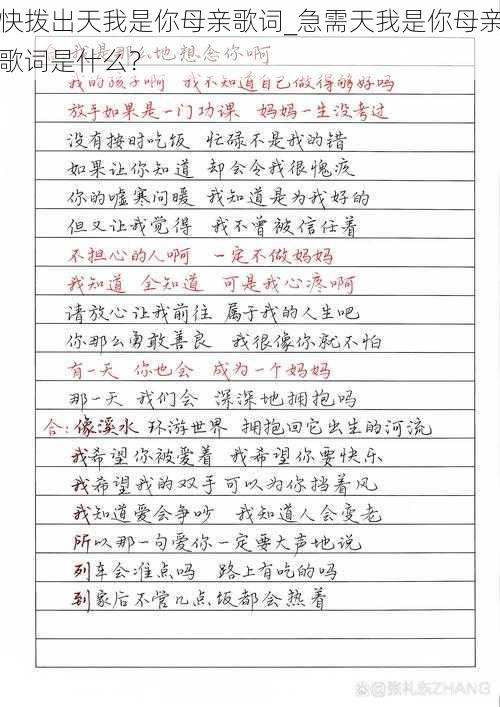 快拨出天我是你母亲歌词_急需天我是你母亲
歌词是什么?
我是那么地想念你啊
我的孩子啊 我不知道自己做得够好吗
放手如果是一门功课 妈妈一生没考过
没有按时吃饭 忙碌不是我的错
如果让你知道 却会令我很愧疚
你的嘘寒问暖 我知道是为我好的
但又让我觉得 我不曾被信任着
不担心的人啊 一定不做妈妈
我知道 全知道 可是我心疼啊
请放心让我前往 属于我的人生吧
你那么勇敢善良 我很像你就不怕
有一天 你也会 成为一个妈妈
那一天 我们会 深深地拥抱吗
合:像溪水 环游世界 拥抱回它出生的河流
我希望你被爱着 我希望你要快乐
我希望我的双手可以为你挡着风
我知道爱会争吵 我知道人会变老
所以那一句爱你一定要大声地说
列车会准点吗 路上有吃的吗
到家后不管几点饭都会热着
@张礼东ZHANG